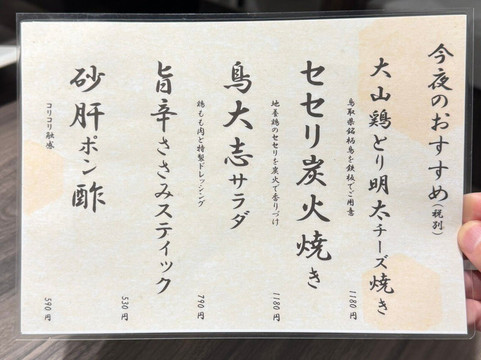 今夜のおすすめ(税別)
大山鶏とり明太チーズ焼き
鳥取県銘柄鳥を鉄板でご用意
1180円
セセリ炭火焼き
地養鶏のセセリを炭火で香りづけ
1180円
鳥大志サラダ
鶏もも肉と特製ドレッシング
790円
旨辛ささみスティック
530円
砂肝ポン酢
コリコリ触感
590円